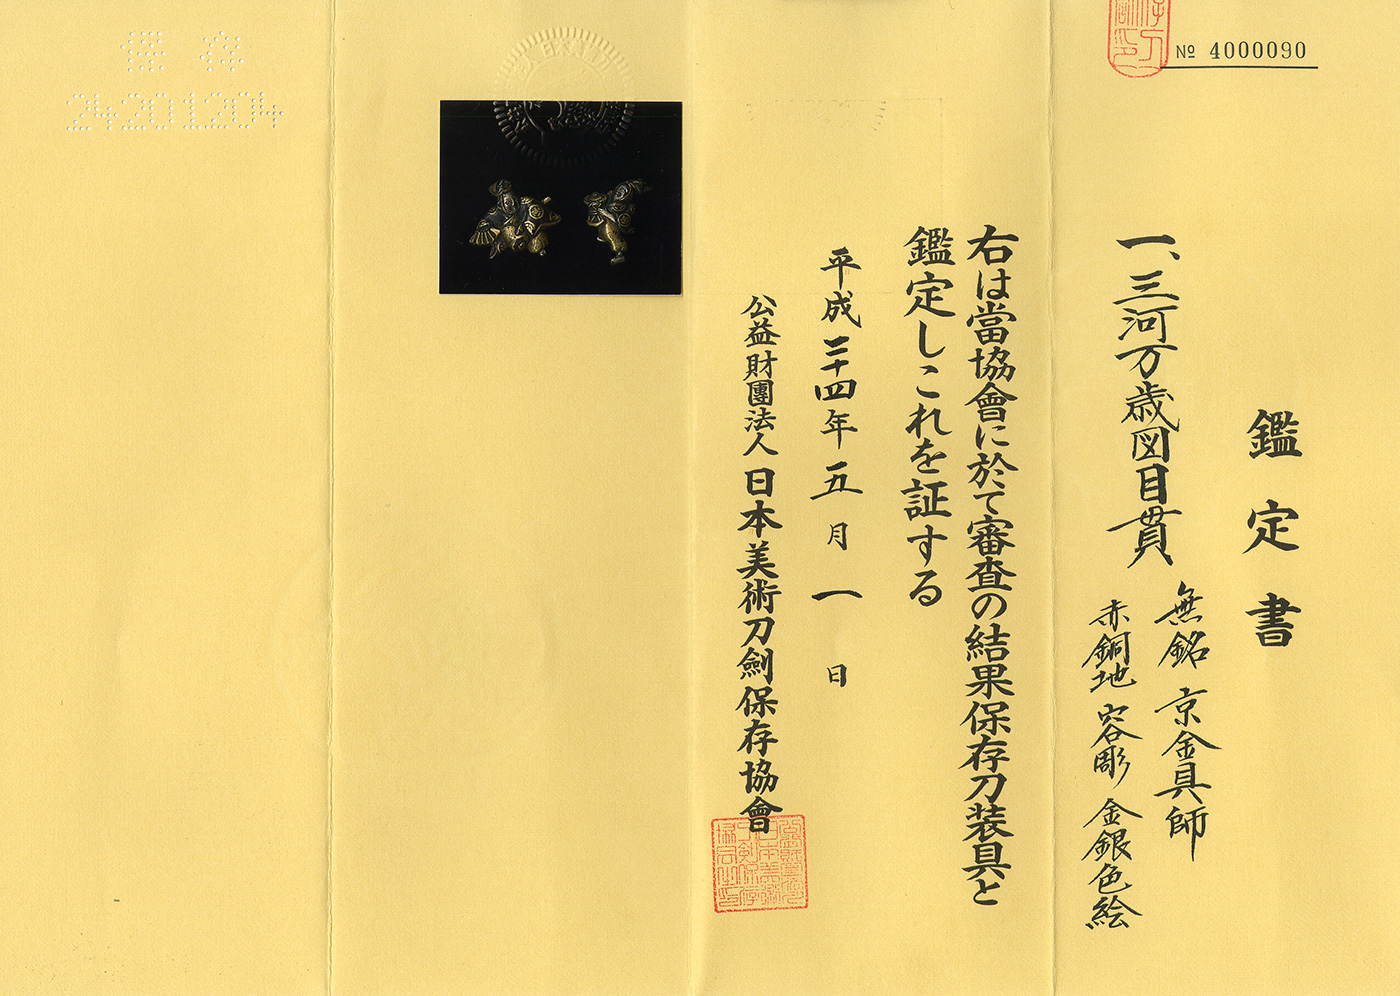 № 4000090
鑑定書
一、三河万歳図目貫
無銘 京金具師
赤銅地 容彫 金銀色絵
右は當協會に於て審査の結果保存刀装具と
鑑定しこれを証する
平成二十四年五月一日
公益財團法人 日本美術刀劍保存協會
保存
24201204